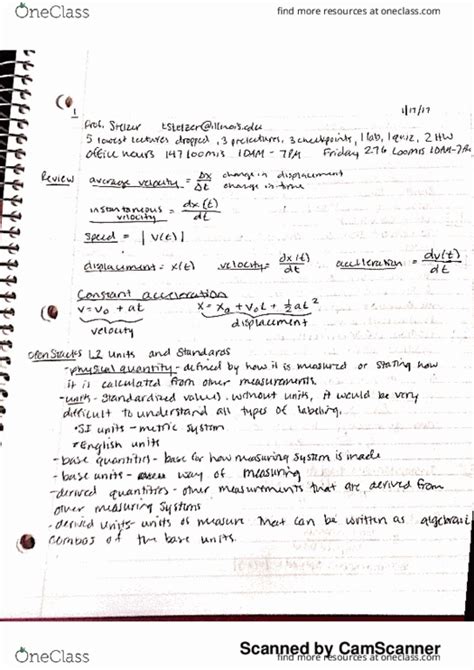 OneClass
find more resources at oneclass.com
1
1/17/17
Prof. Stelzer tstelzer@illinois.edu
5 lowest lectures dropped, 3 prelectures, 3 checkpoints, 1 lab, 1 quiz, 2 HW
office hours 147 loomis 10AM - 7PM Friday 276 Loomis 10AM-7PM
Review average velocity = Δx/Δt change in displacement
change in time
instantaneous velocity = dx(t)/dt
speed = |v(t)|
displacement = x(t) velocity = dx(t)/dt acceleration = dv(t)/dt
Constant acceleration
v = v₀ + at x = x₀ + v₀t + ½at²
velocity displacement
OpenStacks 1.2 Units and Standards
- physical quantity - defined by how it is measured or stating how
it is calculated from other measurements.
- units - standardized values. without units, it would be very
difficult to understand all types of labeling.
• SI units - metric system
• English units
- base quantities - base for how measuring system is made
- base units - way of measuring
- derived quantities - other measurements that are derived from
other measuring systems
- derived units - units of measure that can be written as algebrai
combos of the base units.
Scanned by CamScanner
OneClass
find more resources at oneclass.com